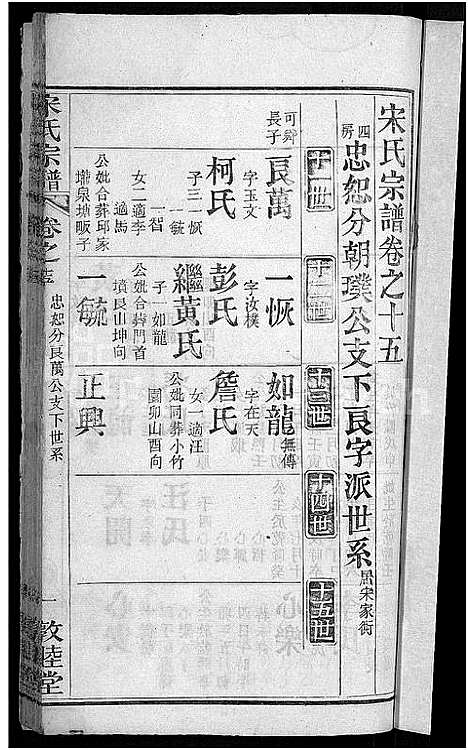 宋氏宗譜卷之十五
四房忠恕分朝璞公支下良字派世系居宋家街
十一世
十二世
十三世
十四世
十五世
可舜長子
良萬
字玉文
柯氏
子三一恢
一毓
一智
女二適李
適馬
公妣合葬邱家
壠泉塘畈子
一恢
字汝樸
彭氏
繼黃氏
子一如龍
公妣合葬門首
墳良山坤向
一毓
如龍無傳
字在天
詹氏
女一適汪
公妣同葬小竹
園卯山酉向
正興
宋氏宗譜
卷之
忠恕分良萬公支下世系
一
敦睦堂